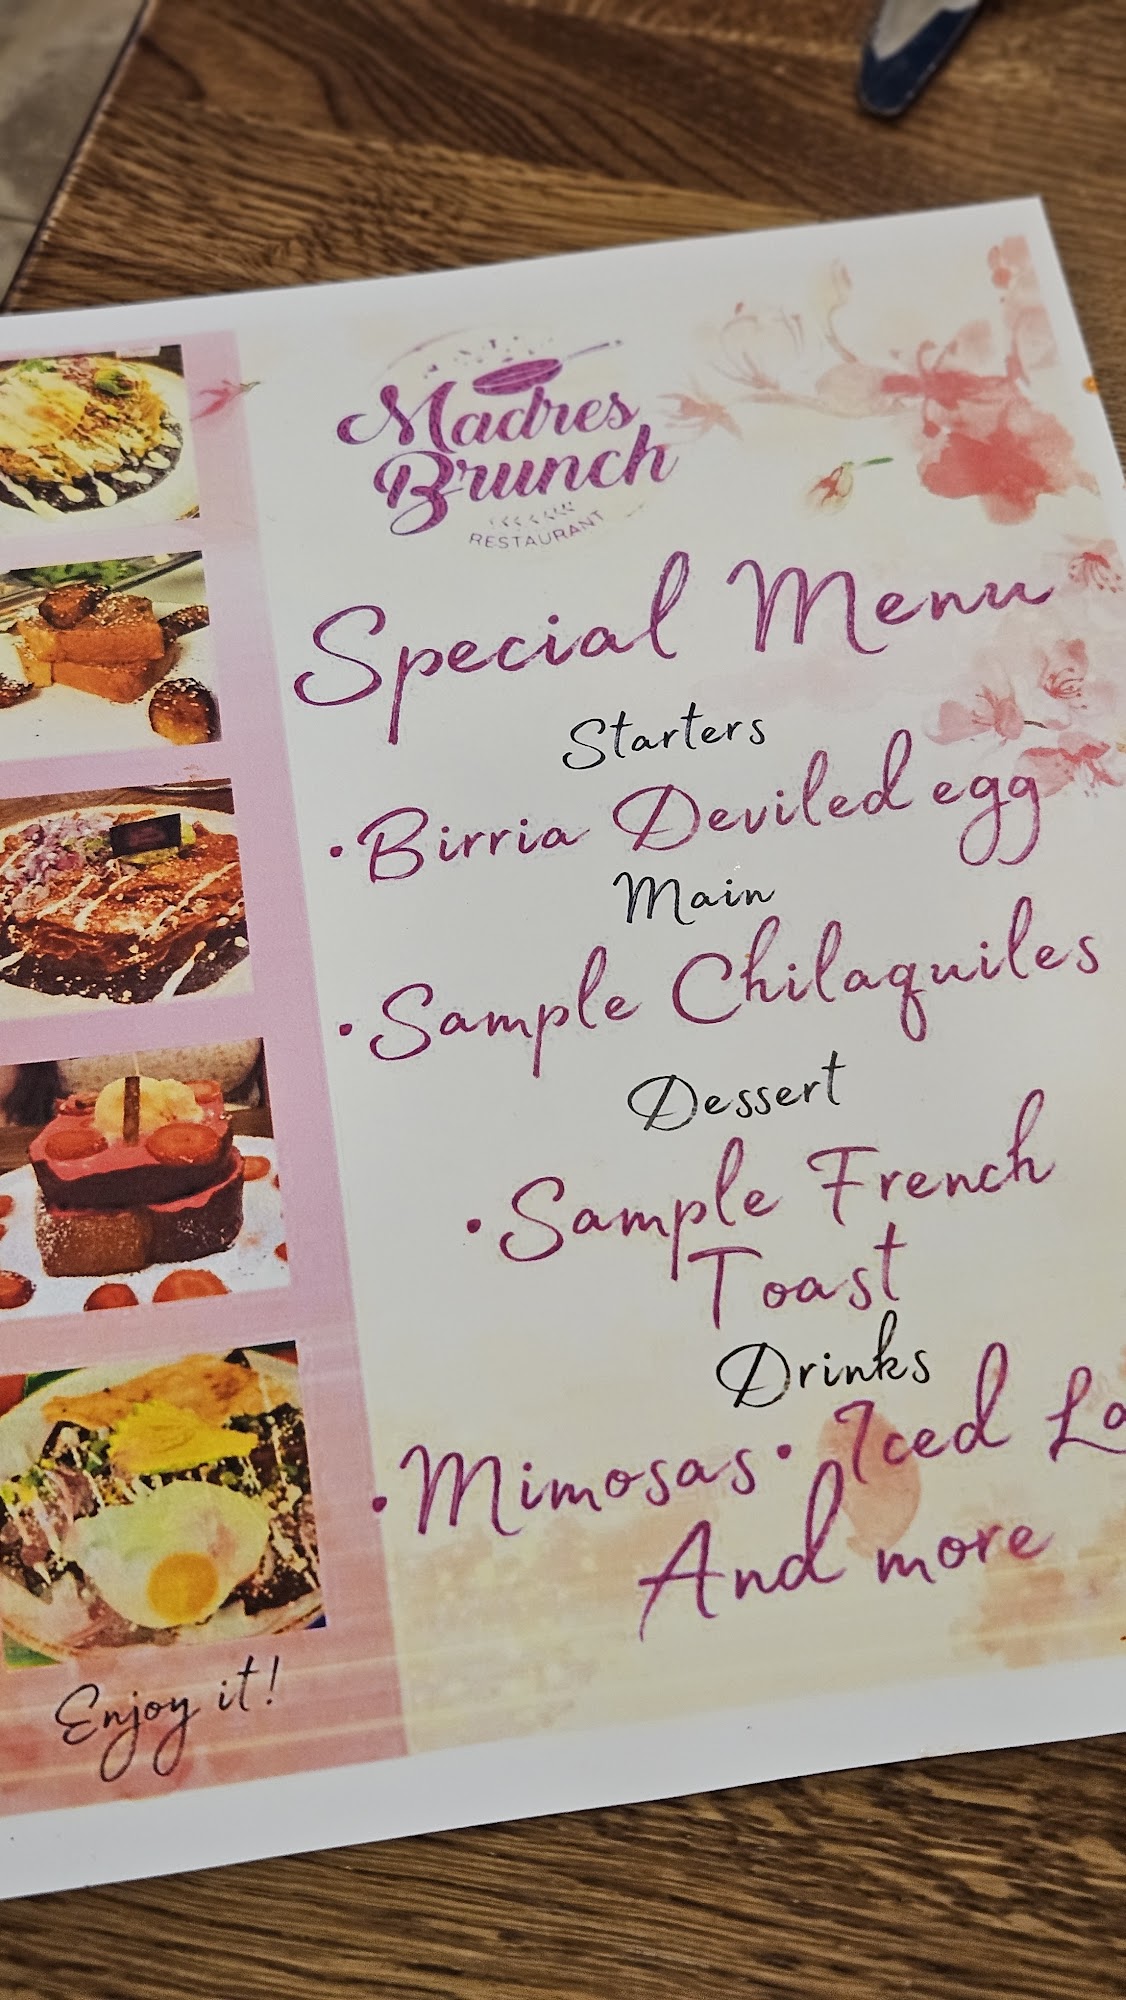 Madres
Brunch
RESTAURANT
Special Menu
Starters
• Birria Deviled egg
Main
• Sample Chilaquiles
Dessert
• Sample French
Toast
Drinks
• Mimosas • Iced
And more
Enjoy it!